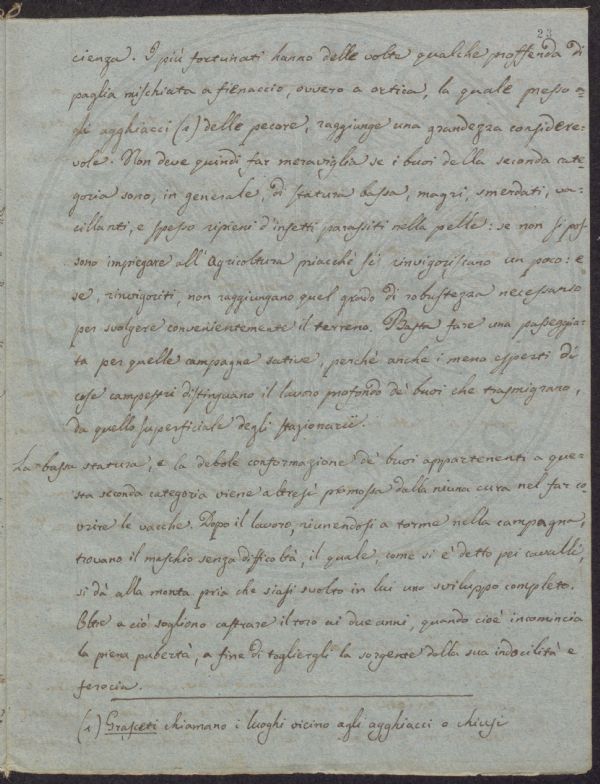 23
cienza. I più fortunati hanno delle volte qualche proffenda di
paglia mischiata a fienaccio, ovvero a ortica, la quale presso a-
gli agghiacci (1) delle pecore, raggiunge una grandezza considere-
vole. Non deve quindi, far meraviglia se i buoi della seconda cate-
goria sono, in generale, di statura bassa, magri, smerdati, va-
cillanti, e spesso ripieni d'insetti parassiti nella pelle: se non si pos-
sono impiegare all'Agricoltura priacchè si rinvigoriscano un poco: e
se, rinvigoriti, non raggiungano quel grado di robustezza necessario
per svolgere convenientemente il terreno. Basta fare una passeggia-
ta per quelle campagne sative, perchè anche i meno esperti di
cose campestri distinguano il lavoro profondo de' buoi che trasmigrano,
da quello superficiale degli stazionarii.
La bassa statura, e la debole conformazione de' buoi appartenenti a que-
sta seconda categoria viene altresì promossa dalla niuna cura nel far co-
vrire le vacche. Dopo il lavoro, riunendosi a torme nella campagna,
trovano il maschio senza difficoltà, il quale, come si è detto pei cavalli,
si dà alla monta pria che siasi svolto in lui uno sviluppo completo.
Oltre a ciò sogliono castrare il toro ai due anni, quando cioè incomincia
la piena pubertà, a fine di togliergli la sorgente della sua indocilità e
ferocia.
(1) Grasceti chiamano i luoghi vicino agli agghiacci o chiusi